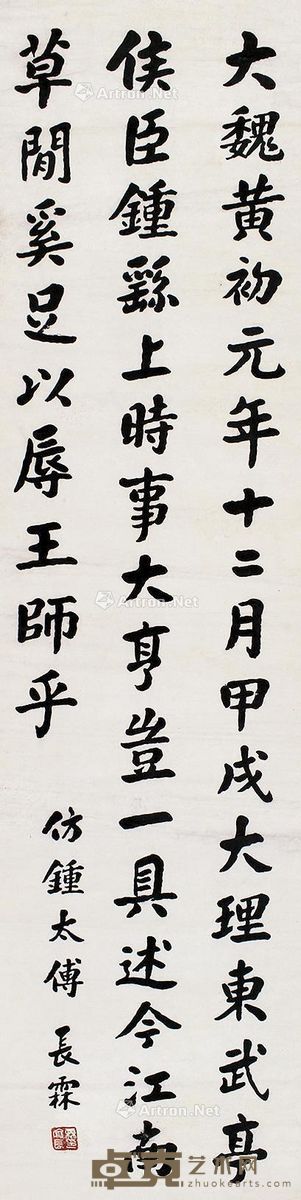 大魏黄初元年十二月甲戌大理東武亭
侯臣鍾繇上時事大亨豈一具述今江南
草閒奚足以辱王師乎
仿鍾太傅 長霖
Artron.Net
Artron.Net
Artron.Net
Artron.Net
Artron.Net
Artron.Net
卓克艺术网
www.zhuokearts.com